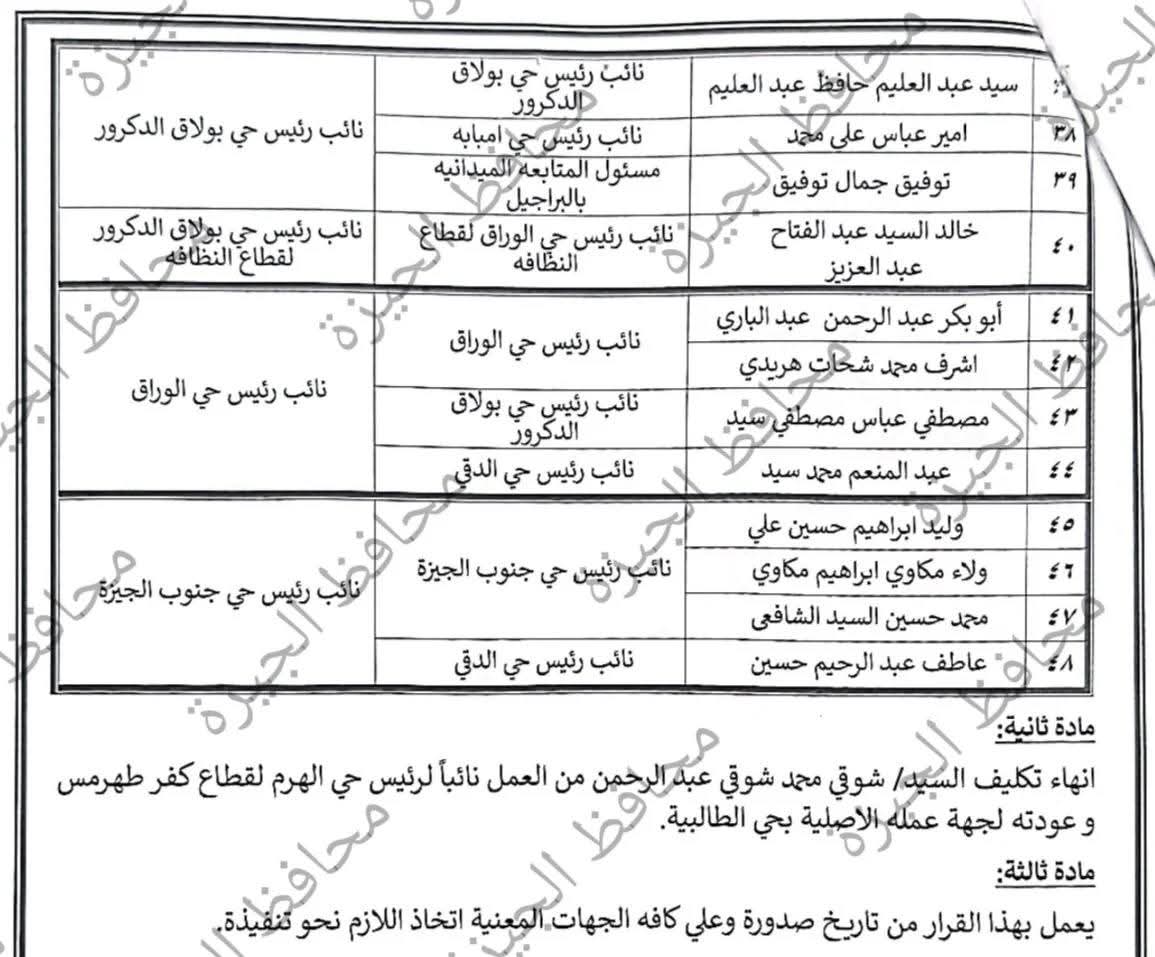 سيد عبد العليم حافظ عبد العليم
نائب رئيس حي بولاق
الدكرور
نائب رئيس حي بولاق الدكرور
٣٨
امير عباس على محمد
نائب رئيس حي امبابه
٣٩
توفيق جمال توفيق
مسئول المتابعه الميدانيه
بالبراجيل
٤٠
خالد السيد عبد الفتاح
عبد العزيز
نائب رئيس حي الوراق لقطاع
النظافه
نائب رئيس حي بولاق الدكرور
لقطاع النظافه
٤١
أبو بكر عبد الرحمن عبد الباري
نائب رئيس حي الوراق
نائب رئيس حي الوراق
٤٢
اشرف محمد شحات هريدي
٤٣
مصطفي عباس مصطفي سيد
نائب رئيس حي بولاق
الدكرور
٤٤
عبد المنعم محمد سيد
نائب رئيس حي الدقي
٤٥
وليد ابراهيم حسين علي
نائب رئيس حي جنوب الجيزة
نائب رئيس حي جنوب الجيزة
٤٦
ولاء مكاوي ابراهيم مكاوي
٤٧
محمد حسين السيد الشافعى
٤٨
عاطف عبد الرحيم حسين
نائب رئيس حي الدقي
مادة ثانية:
انهاء تكليف السيد/ شوقي محمد شوقي عبد الرحمن من العمل نائباً لرئيس حي الهرم لقطاع كفر طهرمس
و عودته لجهة عمله الاصلية بحي الطالبية.
مادة ثالثة:
يعمل بهذا القرار من تاريخ صدورة وعلي كافه الجهات المعنية اتخاذ اللازم نحو تنفيذة.
محافظ الجيزة